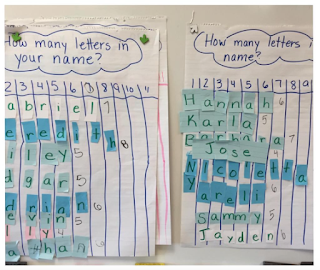 How many letters in
your name?
2 3 4 5 6 7 8 9 10 11
abriel 7
eredith 8
iley 5
dgar 5
drian 6
evin 5
than
How many letters i
name?
1 2 3 4 5 6 7 8 9
Hannah 6
Karla 5
7
Jose 4
Nicolette
Yareli 6
Sammy 5
Jayden 6